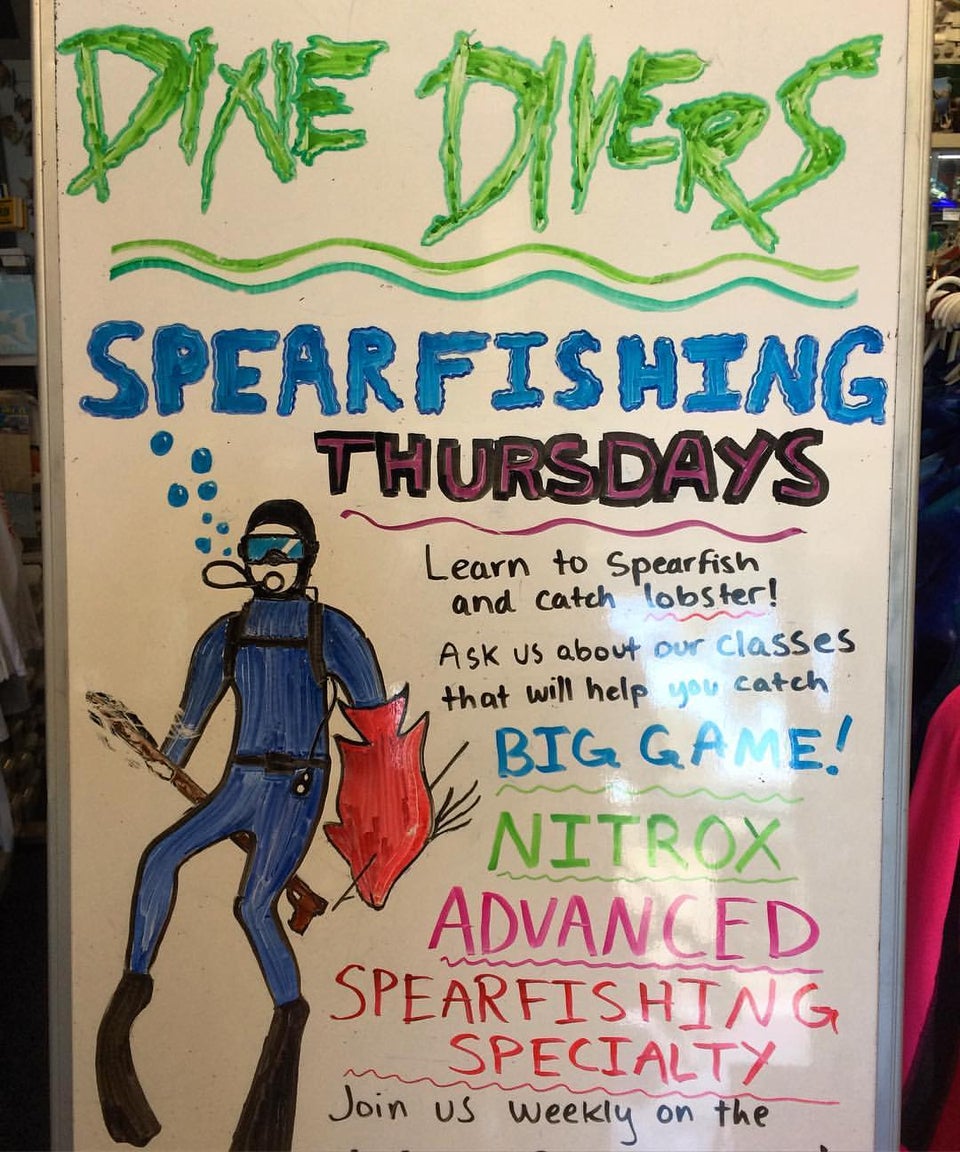 DIXIE DIVERS
SPEARFISHING
THURSDAYS
Learn to Spearfish
and catch lobster!
Ask us about our classes
that will help you catch
BIG GAME!
NITROX
ADVANCED
SPEARFISHING
SPECIALTY
Join us weekly on the